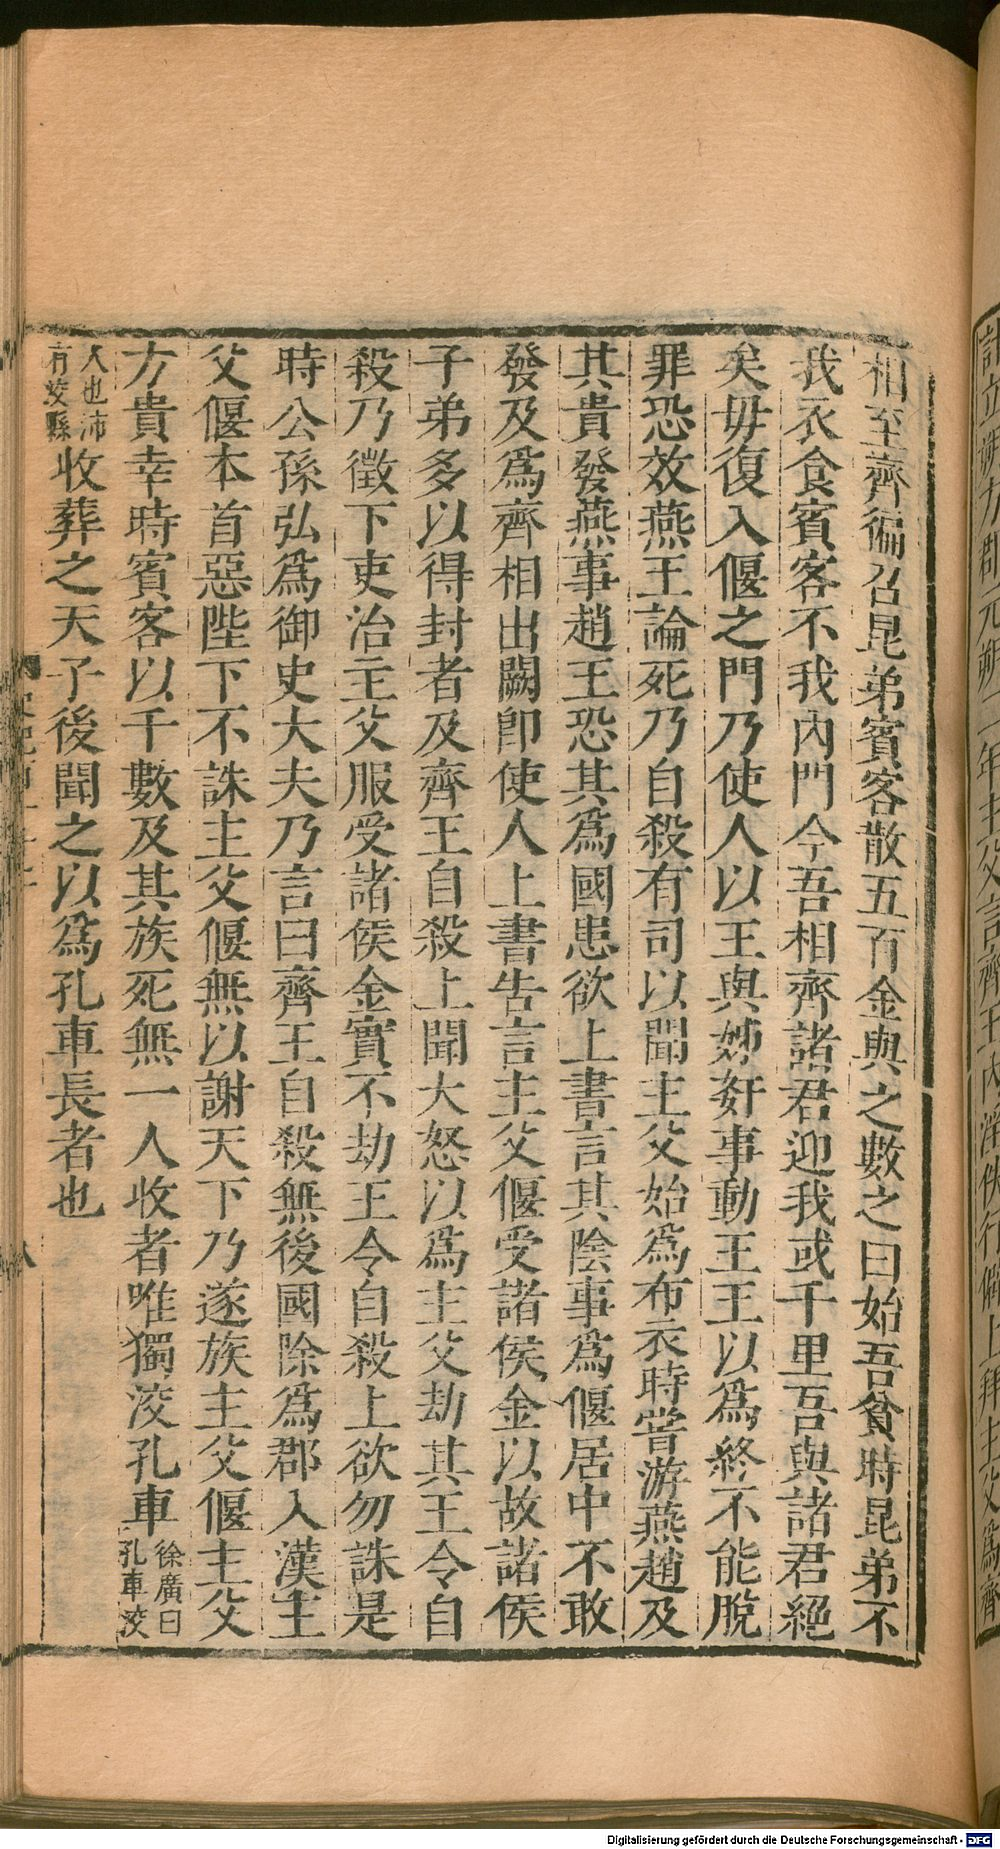 相至齊徧召昆弟賓客散五百金與之數之曰始吾貧時昆弟不
我衣食賓客不我內門今吾相齊諸君迎我或千里吾與諸君絕
矣毋復入偃之門乃使人以王與姊奸事動王王以爲終不能脫
罪恐效燕王論死乃自殺有司以聞主父始爲布衣時嘗游燕趙及
其貴發燕事趙王恐其爲國患欲上書言其陰事爲偃居中不敢
發及爲齊相出關卽使人上書告言主父偃受諸侯金以故諸侯
子弟多以得封者及齊王自殺上聞大怒以爲主父劫其王令自
殺乃徵下吏治主父服受諸侯金實不劫王令自殺上欲勿誅是
時公孫弘爲御史大夫乃言曰齊王自殺無後國除爲郡入漢主
父偃本首惡陛下不誅主父偃無以謝天下乃遂族主父偃主父
方貴幸時賓客以千數及其族死無一人收者唯獨洨孔車徐廣曰孔車洨
人也沛有洨縣收葬之天子後聞之以爲孔車長者也
八
年主父言齊王內淫佚行僻上拜主父爲齊
Digitalisierung gefördert durch die Deutsche Forschungsgemeinschaft - DFG